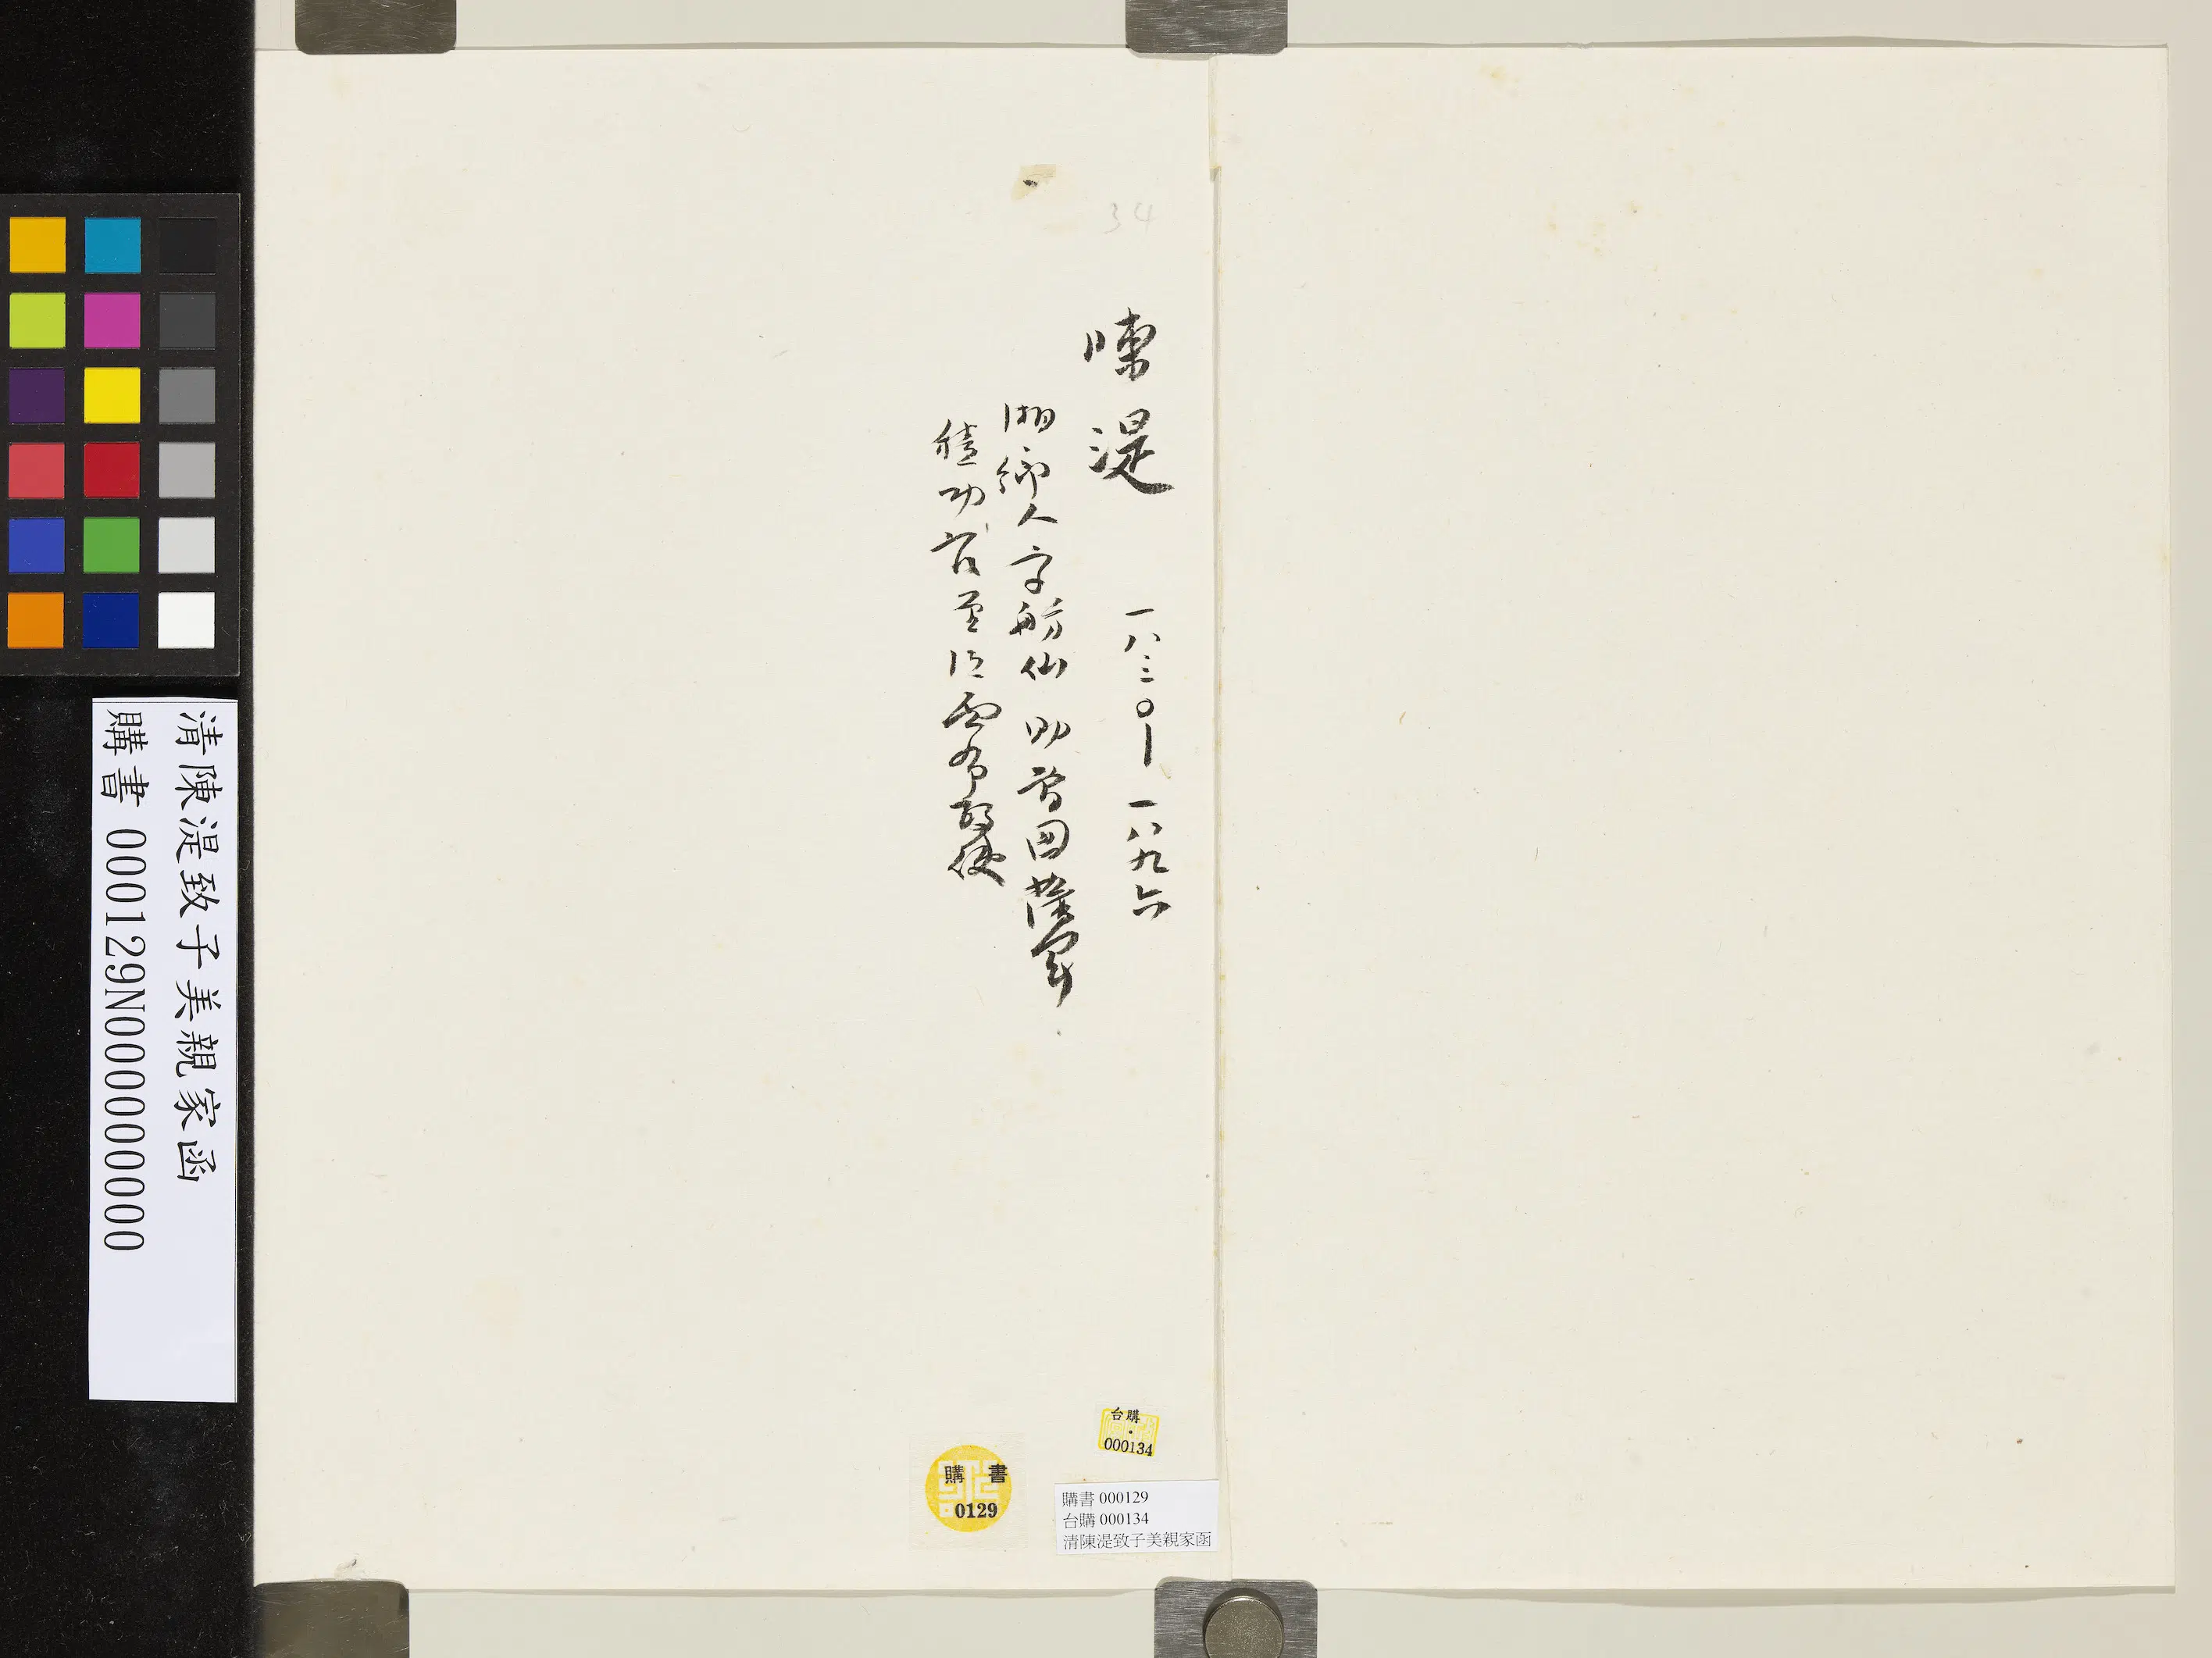 34
陳湜 一八三〇－一八九六
湘鄉人字舫仙 助曾國荃軍
積功官至江西布政使
台購
000134
購書
0129
購書 000129
台購 000134
清陳湜致子美親家函
清陳湜致子美親家函
購書 000129N000000000